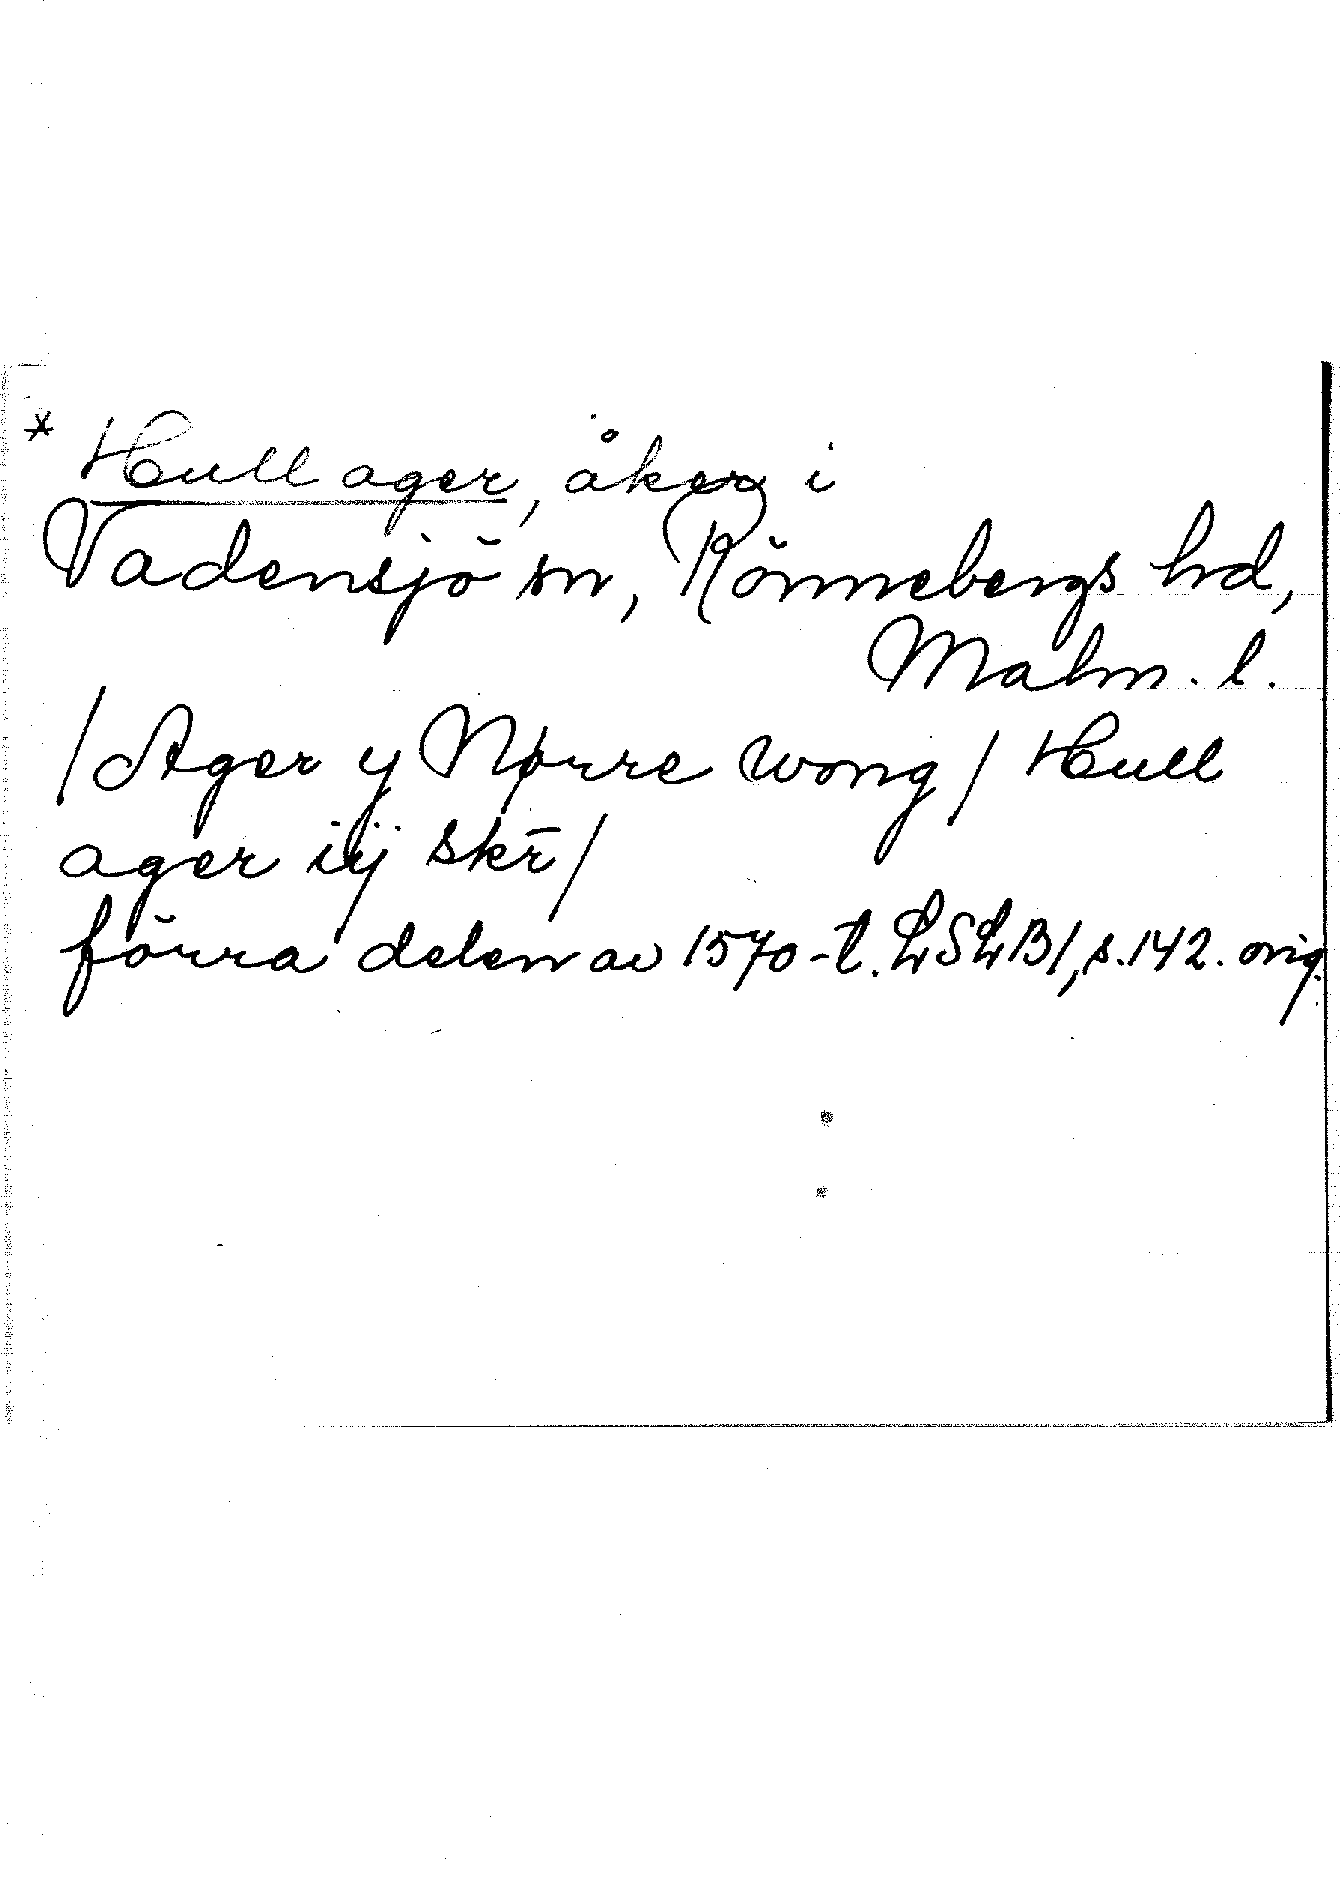 * Hull ager, åker i
Vadensjö sn, Rönnebergs hd,
Malm. l.
/Ager y Nørre wong/ Hull
ager iij skr̄/
förra delen av 1570-t. LSLB1, s. 142. orig.